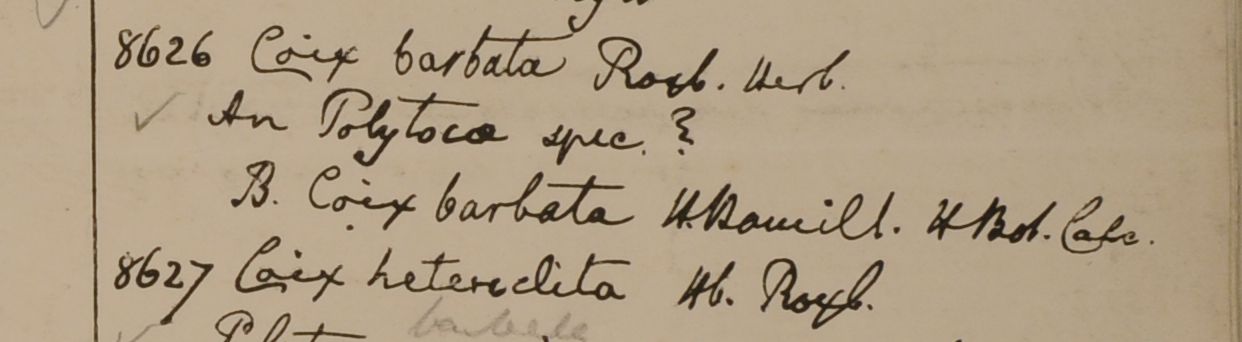 8626 Coix barbata Roxb. Herb.
An Polytoca spec. ?
B. Coix barbata H.Hamill. H Bot. Calc.
8627 Coix heteroclita Hb. Roxb.
barbata